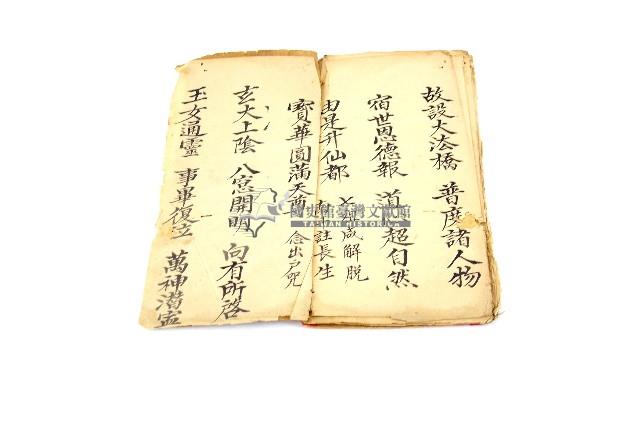 故設大法橋 普度諸人物
宿世恩德報 道 超自然
由是升仙都 成解脫
註長生
寶華圓滿天尊 念出戶咒
玄大上陰 八窓開明 向有所啓
玉女通靈 事畢復立 萬神潛
國史館臺灣文獻館
TAIWAN HISTORICA